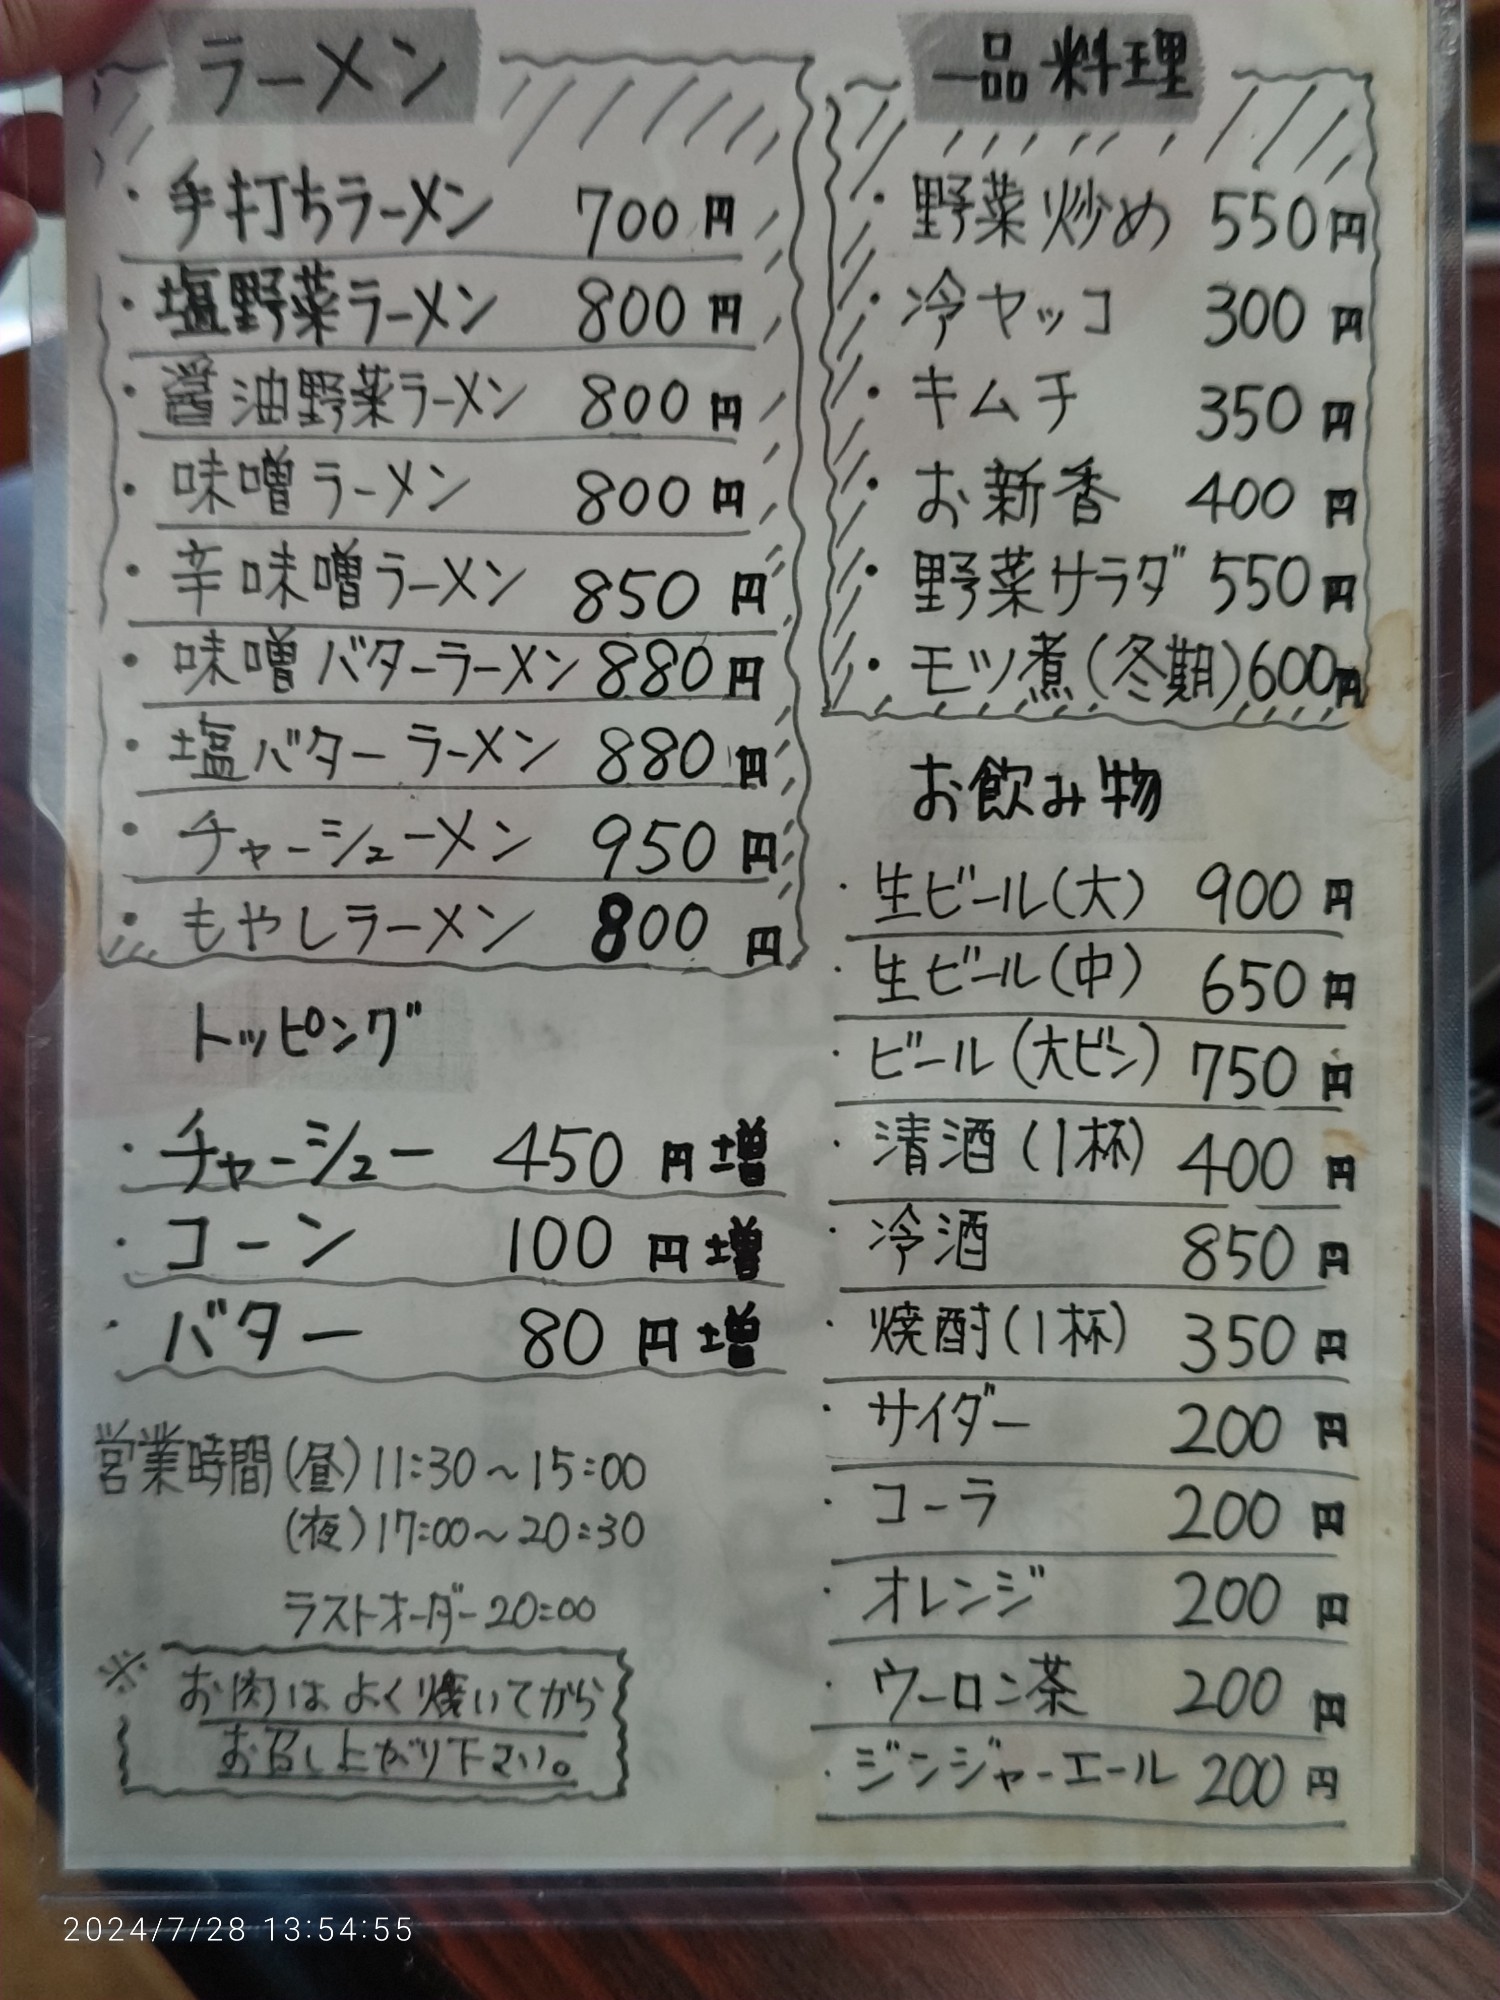 ラーメン
・手打ちラーメン 700円
・塩野菜ラーメン 800円
・醤油野菜ラーメン 800円
・味噌ラーメン 800円
・辛味噌ラーメン 850円
・味噌バターラーメン 880円
・塩バターラーメン 880円
・チャーシューメン 950円
・もやしラーメン 800円
トッピング
・チャーシュー 450円増
・コーン 100円増
・バター 80円増
営業時間(昼)11:30～15:00
(夜)17:00～20:30
ラストオーダー20:00
※お肉はよく焼いてから
お召し上がり下さい。
一品料理
・野菜炒め 550円
・冷ヤッコ 300円
・キムチ 350円
・お新香 400円
・野菜サラダ 550円
・モツ煮(冬期)600円
お飲み物
・生ビール(大) 900円
・生ビール(中) 650円
・ビール(大ビン) 750円
・清酒(1杯) 400円
・冷酒 850円
・焼酎(1杯) 350円
・サイダー 200円
・コーラ 200円
・オレンジ 200円
・ウーロン茶 200円
・ジンジャーエール 200円
CARD CASE
2024/7/28 13:54:55